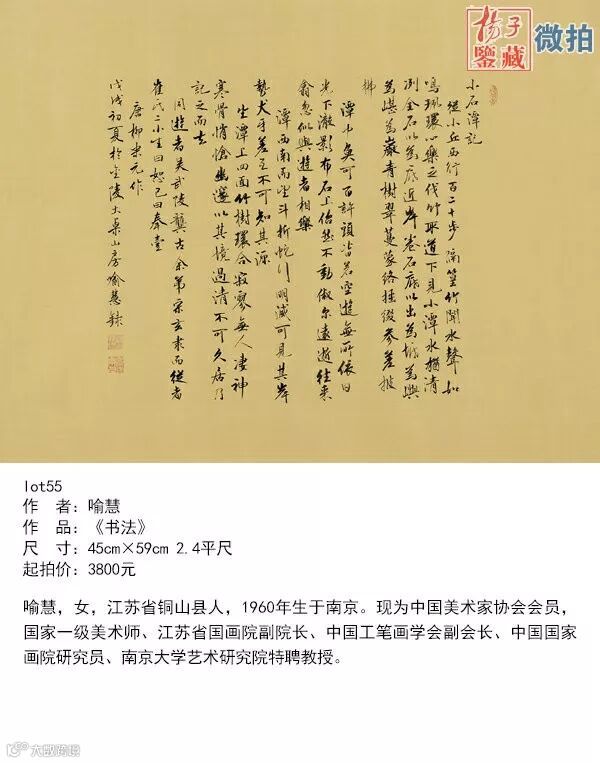 楊子
鑒藏
微拍
小石潭記
從小丘西行百二十步隔篁竹聞水聲如
鳴珮環心樂之伐竹取道下見小潭水猶清
冽全石以為底近岸卷石底以出為坻為嶼
為嵁為巖青樹翠蔓蒙絡搖綴參差披
拂
潭中魚可百許頭皆若空遊無所依日
光下澈影布石上佁然不動俶尔遠逝往来
翕忽似與遊者相樂
潭西南而望斗折蛇行明滅可見其岸
勢犬牙差互不可知其源
坐潭上四面竹樹環合寂寥無人凄神
寒骨悄愴幽邃以其境過清不可久居乃
記之而去
同遊者吴武陵龔古余弟宗玄隶而從者
崔氏二小生曰恕己曰奉壹
唐柳宗元作
戊戌初夏於金陵大桌山房喻慧錄
lot55
作 者：喻慧
作 品：《书法》
尺 寸：45cm×59cm 2.4平尺
起拍价：3800元
喻慧，女，江苏省铜山县人，1960年生于南京。现为中国美术家协会会员，
国家一级美术师、江苏省国画院副院长、中国工笔画学会副会长、中国国家
画院研究员、南京大学艺术研究院特聘教授。
大数跨境